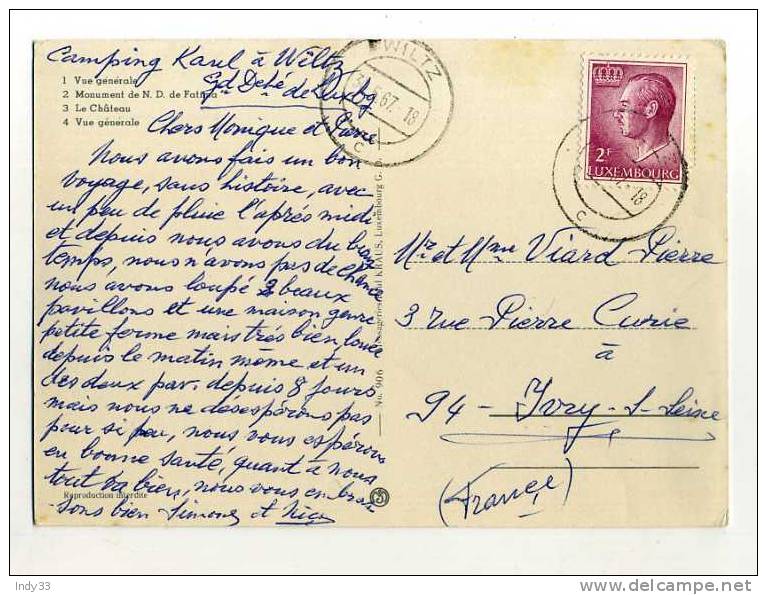 Camping Kaul à Wiltz
Gd Deké de Luxbg
1 Vue generale
2 Monument de N. D. de Fatima
3 Le Château
4 Vue générale
Chers Monique et Pierre
Nous avons fais un bon
voyage, sans histoire, avec
un peu de pluie l'après midi
et depuis nous avons du beau
temps, nous n'avons pas de chance
nous avons loupé 2 beaux
pavillons et une maison genre
petite ferme mais très bien louée
depuis le matin même et un
des deux pav. depuis 8 jours
mais nous ne desespérons pas
pour si peu, nous vous espérons
en bonne santé, quant à nous
tout va bien, nous vous embras
sons bien Simone et
Reproduction interdite
No. 906 Messageries Paul KRAUS, Luxembourg G.
WILTZ
67. 18
C
2F
LUXEMBOURG
18
C
Mr et Mme Viard Pierre
3 rue Pierre Curie
à
94 - Ivry-s-Seine
(France)
Indy33
delcampe.net